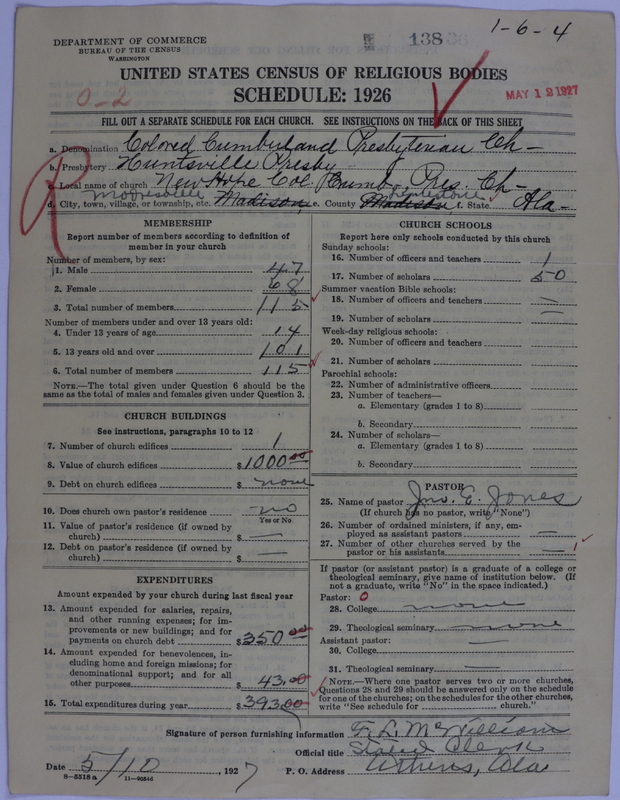 1-6-4
DEPARTMENT OF COMMERCE
BUREAU OF THE CENSUS
WASHINGTON
138
UNITED STATES CENSUS OF RELIGIOUS BODIES
SCHEDULE: 1926
0-2
MAY 12 1927
FILL OUT A SEPARATE SCHEDULE FOR EACH CHURCH. SEE INSTRUCTIONS ON THE BACK OF THIS SHEET
a. Denomination Colored Cumberland Presbyterian Ch-
b. Presbytery Huntsville Presby-
c. Local name of church New Hope Col. Cumb. Pres. Ch-
d. City, town, village, or township, etc. Mooresville Madison, e. County Madison Limestone f. State Ala-
MEMBERSHIP
Report number of members according to definition of member in your church
Number of members, by sex:
1. Male 47
2. Female 68
3. Total number of members 115
Number of members under and over 13 years old:
4. Under 13 years of age 14
5. 13 years old and over 101
6. Total number of members 115
NOTE.—The total given under Question 6 should be the same as the total of males and females given under Question 3.
CHURCH BUILDINGS
See instructions, paragraphs 10 to 12
7. Number of church edifices 1
8. Value of church edifices $1000.00
9. Debt on church edifices $ none
10. Does church own pastor's residence no
Yes or No
11. Value of pastor's residence (if owned by church) $ —
12. Debt on pastor's residence (if owned by church) $ —
EXPENDITURES
Amount expended by your church during last fiscal year
13. Amount expended for salaries, repairs, and other running expenses; for improvements or new buildings; and for payments on church debt $350.00
14. Amount expended for benevolences, including home and foreign missions; for denominational support; and for all other purposes $43.00
15. Total expenditures during year $393.00
CHURCH SCHOOLS
Report here only schools conducted by this church
Sunday schools:
16. Number of officers and teachers 1
17. Number of scholars 50
Summer vacation Bible schools:
18. Number of officers and teachers —
19. Number of scholars —
Week-day religious schools:
20. Number of officers and teachers
21. Number of scholars
Parochial schools:
22. Number of administrative officers
23. Number of teachers—
a. Elementary (grades 1 to 8)
b. Secondary
24. Number of scholars—
a. Elementary (grades 1 to 8)
b. Secondary
PASTOR
25. Name of pastor Jno. E. Jones
(If church has no pastor, write "None")
26. Number of ordained ministers, if any, employed as assistant pastors —
27. Number of other churches served by the pastor or his assistants — 1
If pastor (or assistant pastor) is a graduate of a college or theological seminary, give name of institution below. (If not a graduate, write "No" in the space indicated.)
Pastor: 0
28. College none
29. Theological seminary none
Assistant pastor: —
30. College —
31. Theological seminary —
NOTE.—Where one pastor serves two or more churches, Questions 28 and 29 should be answered only on the schedule for one of the churches; on the schedules for the other churches, write "See schedule for church."
Signature of person furnishing information F. L. McWilliam
Official title Stated Clerk
Date 5/10, 1927 P. O. Address Athens, Ala
8-5518 a